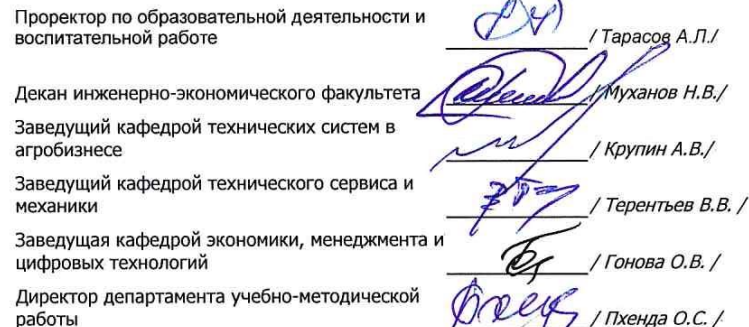 Проректор по образовательной деятельности и
воспитательной работе / Тарасов А.Л./
Декан инженерно-экономического факультета / Муханов Н.В./
Заведущий кафедрой технических систем в
агробизнесе / Крупин А.В./
Заведущий кафедрой технического сервиса и
механики / Терентьев В.В. /
Заведущая кафедрой экономики, менеджмента и
цифровых технологий / Гонова О.В. /
Директор департамента учебно-методической
работы / Пхенда О.С. /